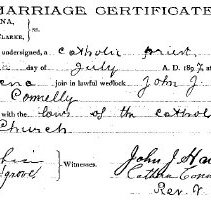 MARRIAGE CERTIFICATE
NA,
CLARKE, } ss.
undersigned, a Catholic priest
day of July A. D. 189
ena join in lawful wedlock John J.
Connelly
with the laws of the Catholic
Church
Witnesses. John J. Ha
grove
Rev. V.